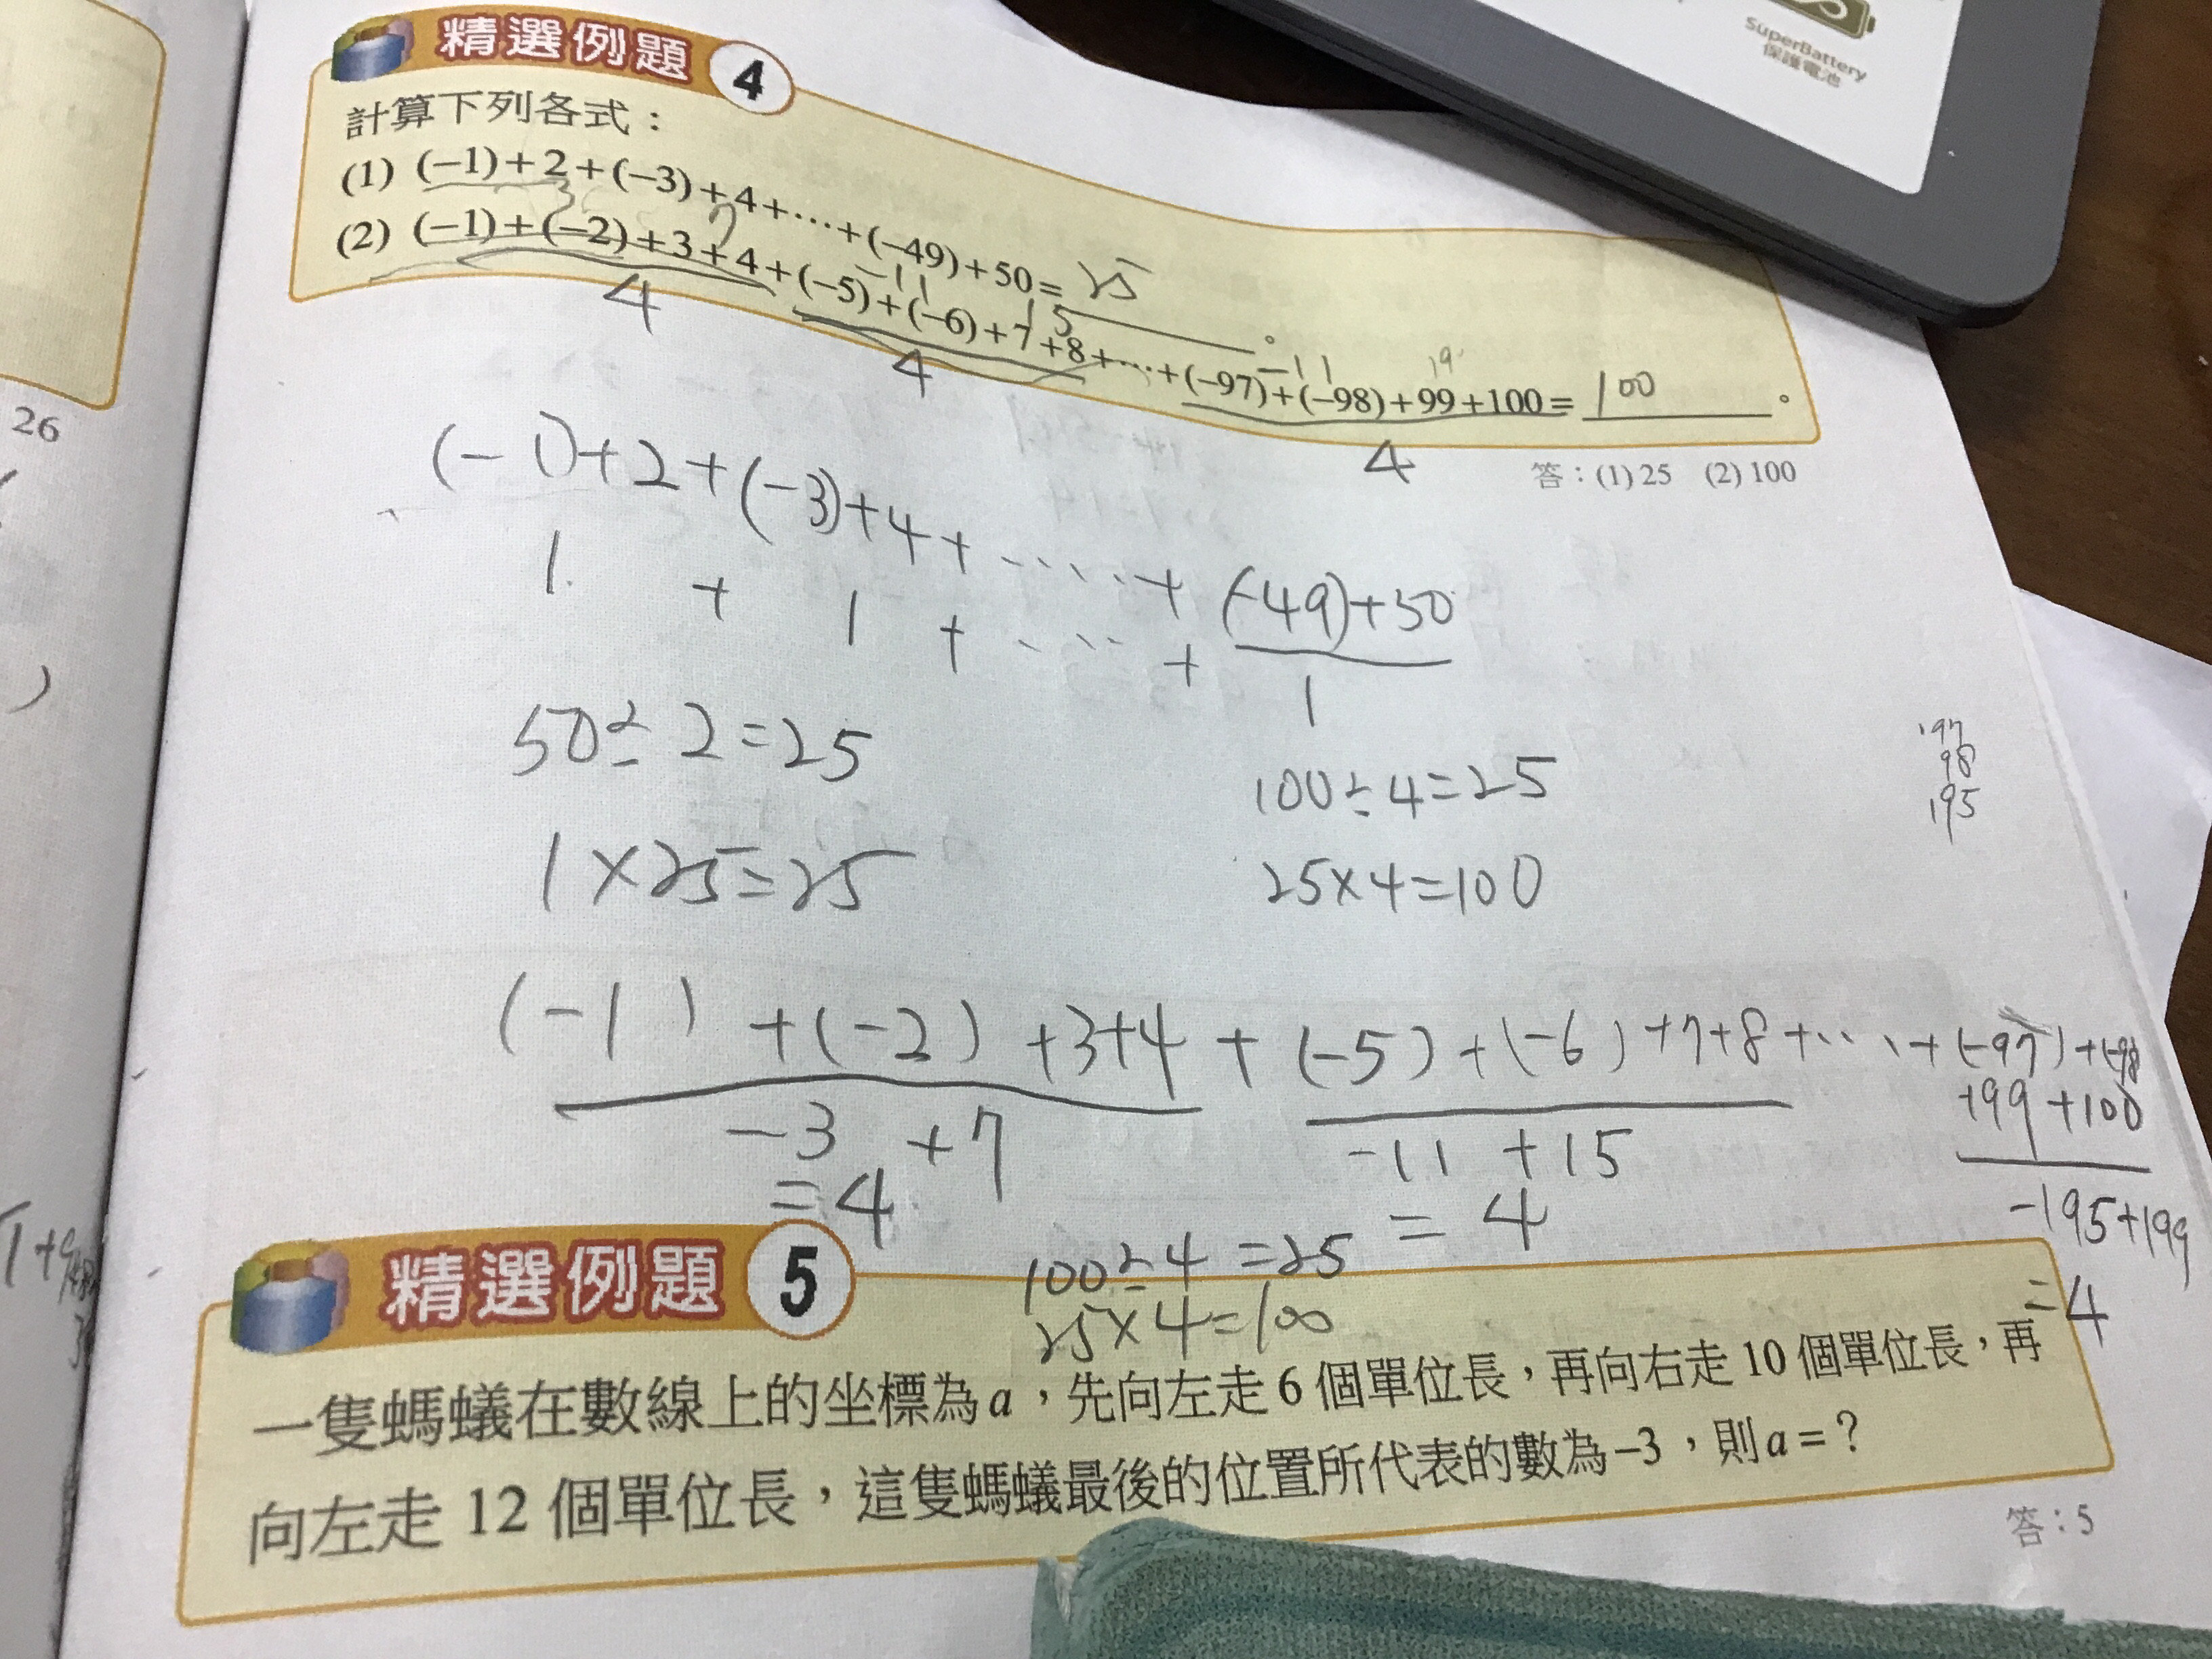 SuperBattery
保護電池
精選例題 4
計算下列各式：
(1) (−1)+2+(−3)+4+⋯+(−49)+50= 25 。
(2) (−1)+(−2)+3+4+(−5)+(−6)+7+8+⋯+(−97)+(−98)+99+100= 100 。
7 -11 15 -11 19
4 4 4
答：(1) 25 (2) 100
26
(-1)+2+(-3)+4+.....+(-49)+50
1 + 1 + .... + 1
50÷2=25
1×25=25
100÷4=25
25×4=100
197
98
195
(-1)+(-2)+3+4+(-5)+(-6)+7+8+...+(-97)+(-98)
+99+100
-3 +7 -11 +15 -195+199
=4 =4 =4
100÷4=25
25×4=100
精選例題 5
一隻螞蟻在數線上的坐標為a，先向左走6個單位長，再向右走10個單位長，再
向左走12個單位長，這隻螞蟻最後的位置所代表的數為−3，則a=？
答：5